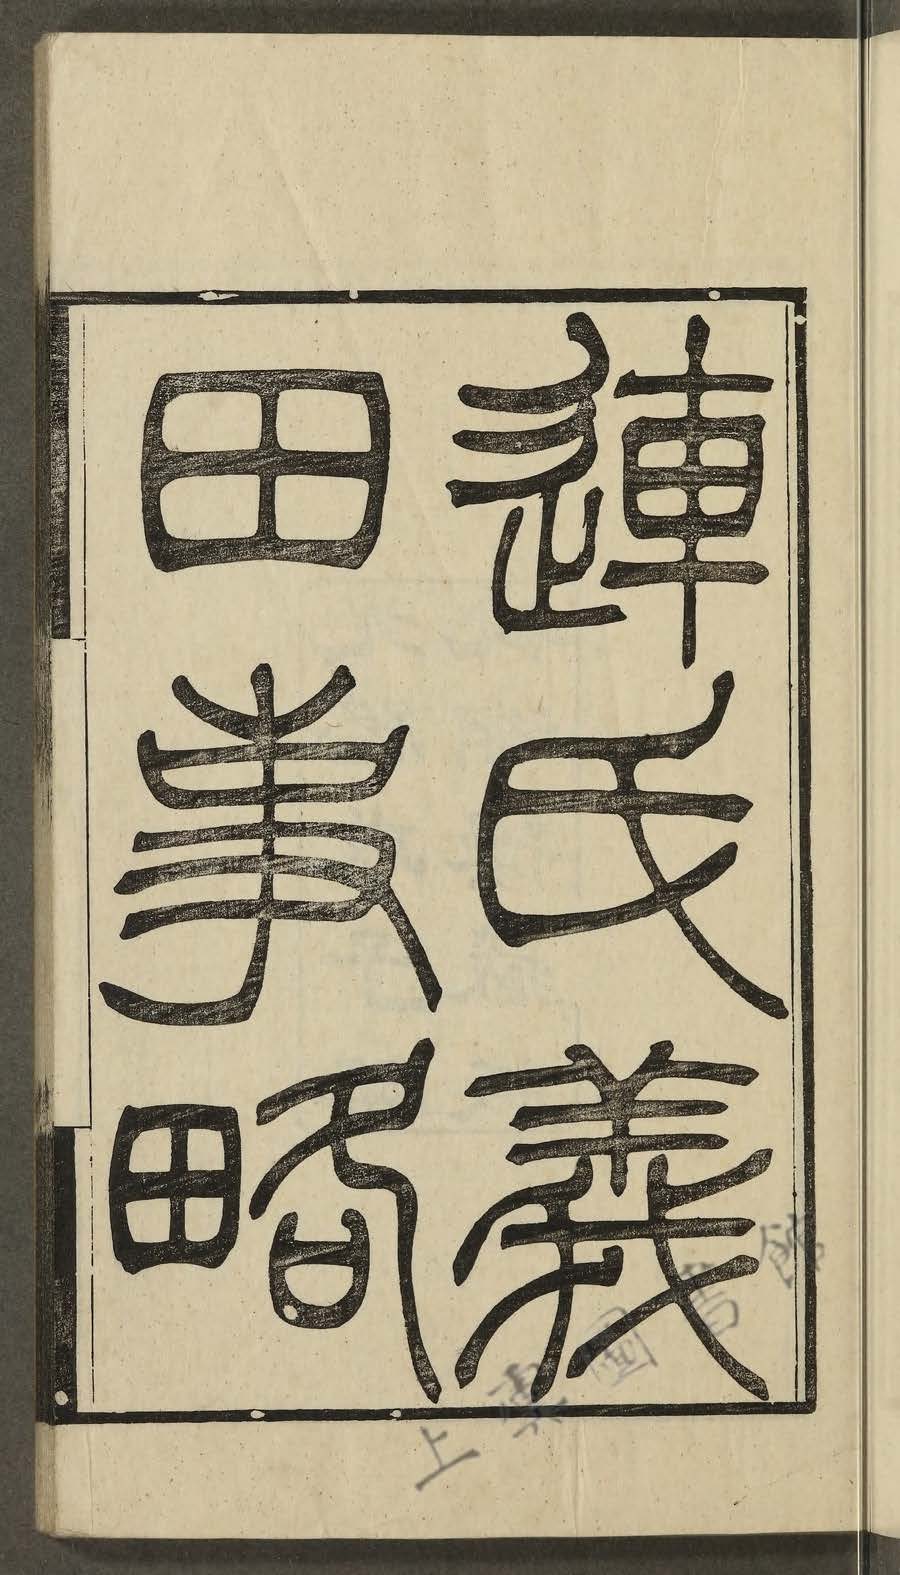 連氏義
田事略
上虞圖書館